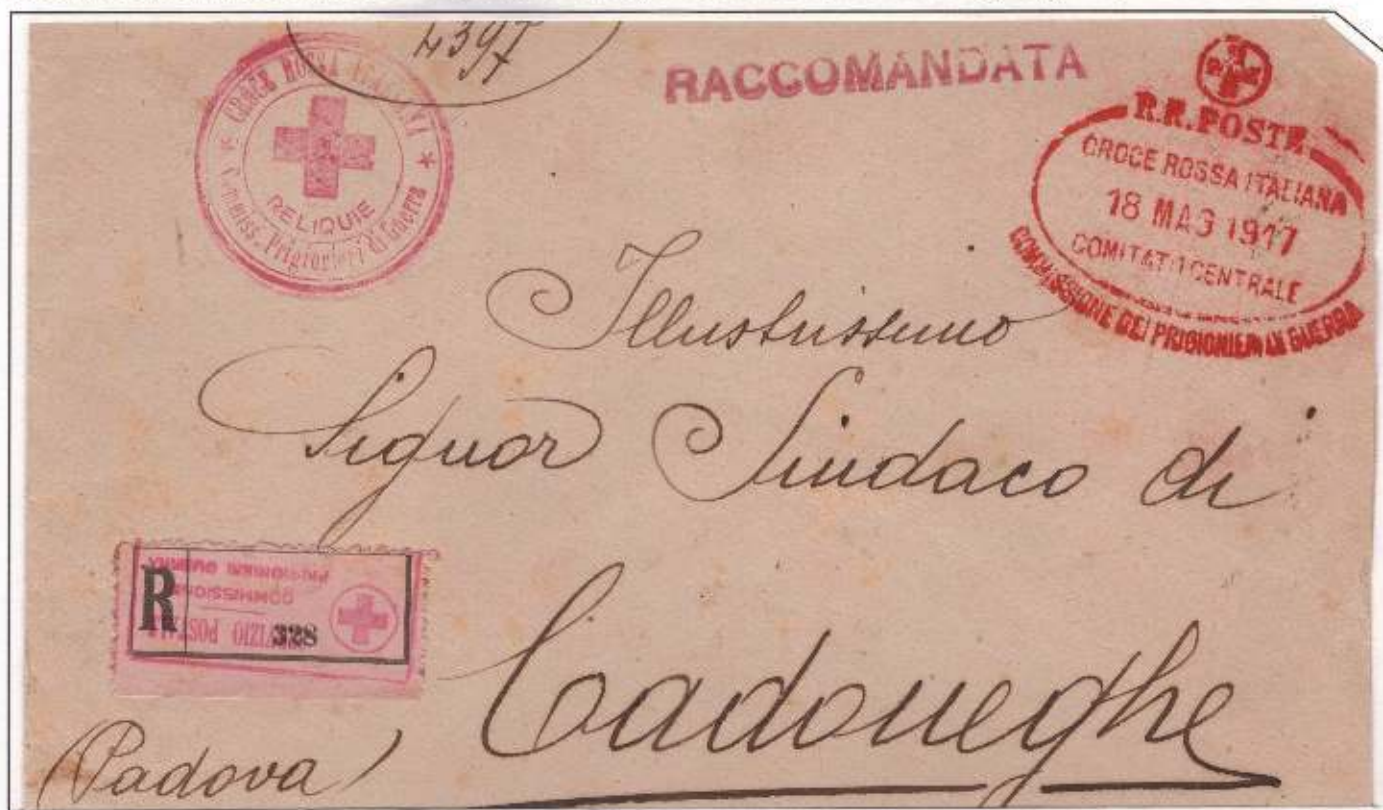 4397
CROCE ROSSA ITALIANA
RELIQUIE
Commiss. Prigionieri di Guerra
RACCOMANDATA
R.R. POSTE
CROCE ROSSA ITALIANA
18 MAG 1917
COMITATO CENTRALE
COMMISSIONE DEI PRIGIONIERI DI GUERRA
Illustrissimo
Signor Sindaco di
Cadoneghe
(Padova)
R
328
UFFIZIO POSTALE
COMMISSIONE
PRIGIONIERI GUERRA